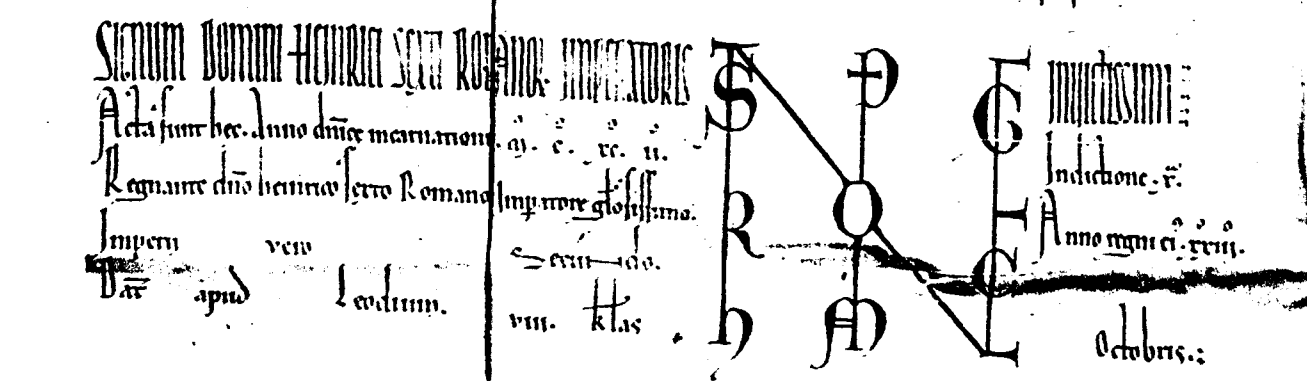 SIGNUM DOMINI HEINRICI SEXTI ROMANOR. IMPERATORIS INVICTISSIMI
Acta sunt hec. Anno dn̄icę incarnationis. Indictione. x̄.
Regnante dn̄o heinrico sexto Romano Imp̱atore gl̄osissimo. Anno regni ei. xxiii.
Imperii vero Secundo.
Dat̄ apud Leodium. viii. kl̄as Octobris.